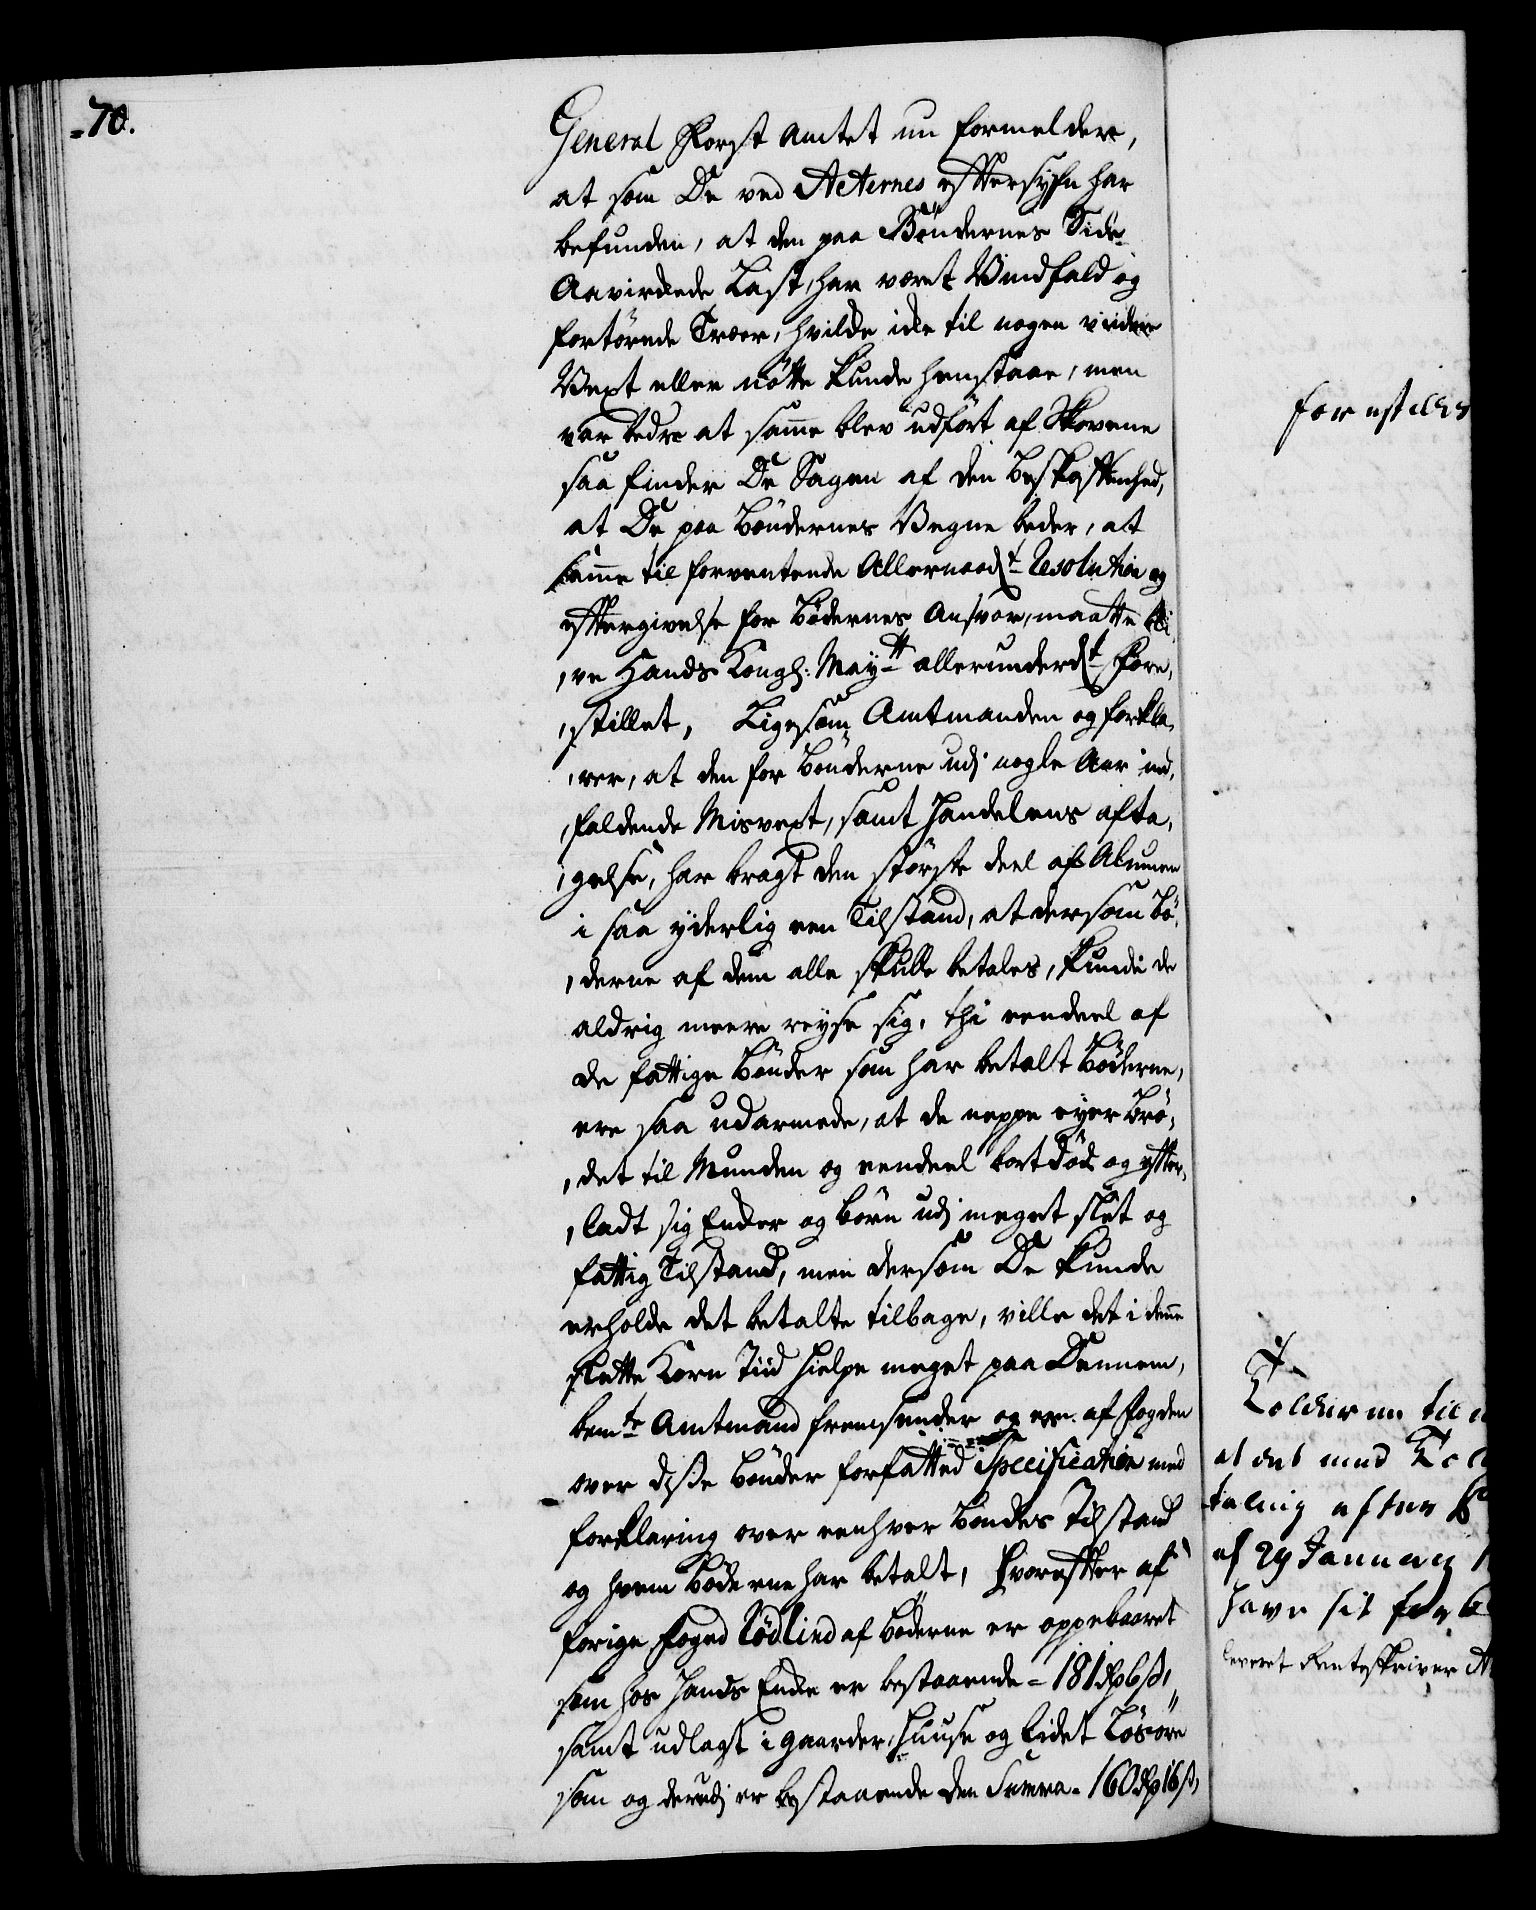 =70.
General Forst Amtet nu formelder,
at som De ved Acternes eftersyffn har
befunden, at den paa Bøndernes Side
Aavirkede Last, har været Vindfald og
fortørrede Træer, hvilke icke til nogen viidere
Vext eller nøtte kunde henstaae, men
var bedre at samme blev udført af Skovene
saa finder De Sagen af den beskaffenhed,
at De paa Bøndernes Vegne beder, at
samme til forventende Allernaadst Resolution og
eftergivelse for Bødernes Ansvar, maatte bli,
,ve Hands Kongl: Maytt allerunderdst fore,
,stillet, Ligesom Amtmanden og forkla,
,rer, at den for Bønderne udj nogle Aar ind,
,faldende Misvext, samt Handelens afta,
,gelse, har bragt den største deel af Almuen
i saa ynderlig een Tilstand, at dersom Bø,
,derne af dem alle skulle betales, kunde de
aldrig meere reyse sig, thi eendeel af
de fattige Bønder som har betalt Bøderne,
ere saa udarmede, at de neppe eyer Brø,
,det til Munden og eendeel bortdød og efter,
,ladt sig Enker og børn udj meget slet og
fattig Tilstand, men dersom De kunde
erholde det betalte tilbage, ville det i denne
slette Korn Tiid hielpe meget paa Dennem,
bemte Amtmand fremsender og een af fogden
over disse Bønder forfatted Specification med
forklaring over eenhver Bondes Tilstand
og hvem Bøderne har betalt, hvorefter af
forige foged Rødlind af bøderne er oppebaaret
som hos hands Enke er bestaaende = 181 Rd 6 s,
samt udlagt i gaarder, huuse og lidet Løsøre
som og derudj er bestaaende den Summa = 160 Rd 16 s,
forestilles
at det med
taling efter
af 29 January
have sit
leveret Renteskriver